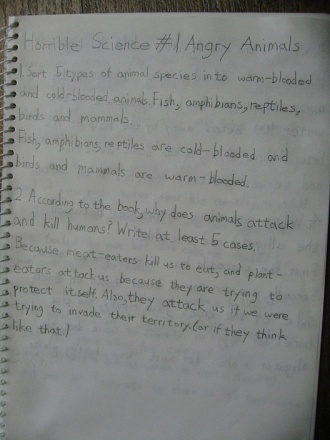 Horrible Science #1 Angry Animals.
1. Sort 5 types of animal species into warm-blooded
and cold-blooded animals. Fish, amphibians, reptiles,
birds and mammals.
Fish, amphibians, reptiles are cold-blooded and
birds and mammals are warm-blooded.
2. According to the book, why does animals attack
and kill humans? Write at least 5 cases.
Because meat-eaters kill us to eat, and plant-
eaters attack us because they are trying to
protect itself. Also, they attack us if we were
trying to invade their territory. (or if they think
like that.)